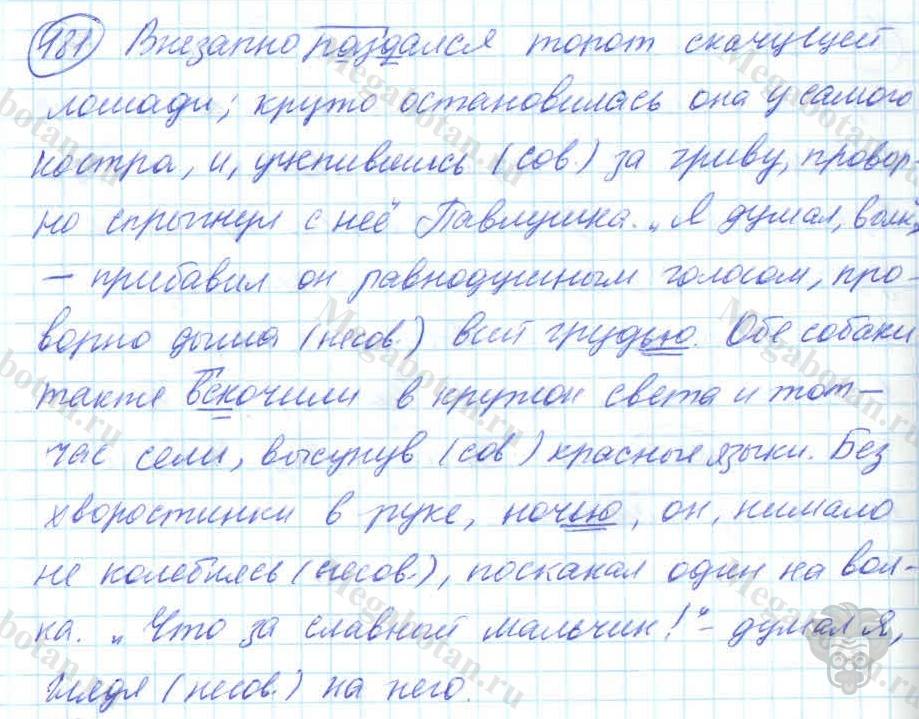 481 Внезапно раздался топот скачущей
лошади; круто остановилась она у самого
костра, и, уцепившись (сов.) за гриву, провор-
но спрыгнул с неё Павлуша. „Я думал, волк",
– прибавил он равнодушным голосом, про-
ворно дыша (несов.) всей грудью. Обе собаки
также вскочили в кружок света и тот-
час сели, высунув (сов) красные языки. Без
хворостинки в руке, ночью, он, нимало
не колеблясь (несов.), поскакал один на вол-
ка. „Что за славный мальчик!" – думал я,
глядя (несов.) на него.
Megabotan.ru